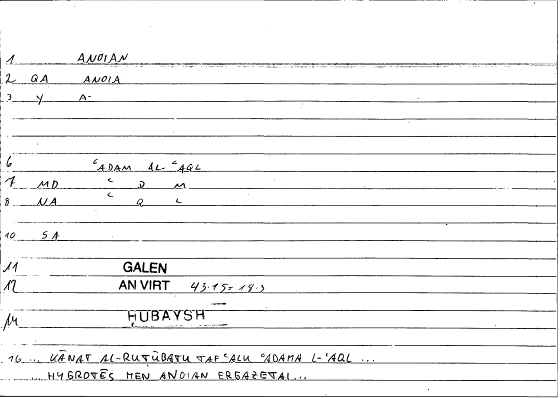 1 ANOIAN
2 QA ANOIA
3 Y A-
6 ʿADAM AL-ʿAQL
7 MD ʿ D M
8 NA ʿ Q L
10 SA
11 GALEN
12 AN VIRT 43.15=18.3
14 ḤUBAYSH
16 ... KĀNAT AL-RUṬŪBATU TAFʿALU ʿADAMA L-ʿAQL ...
... HYGROTĒS MEN ANOIAN ERGAZETAI...